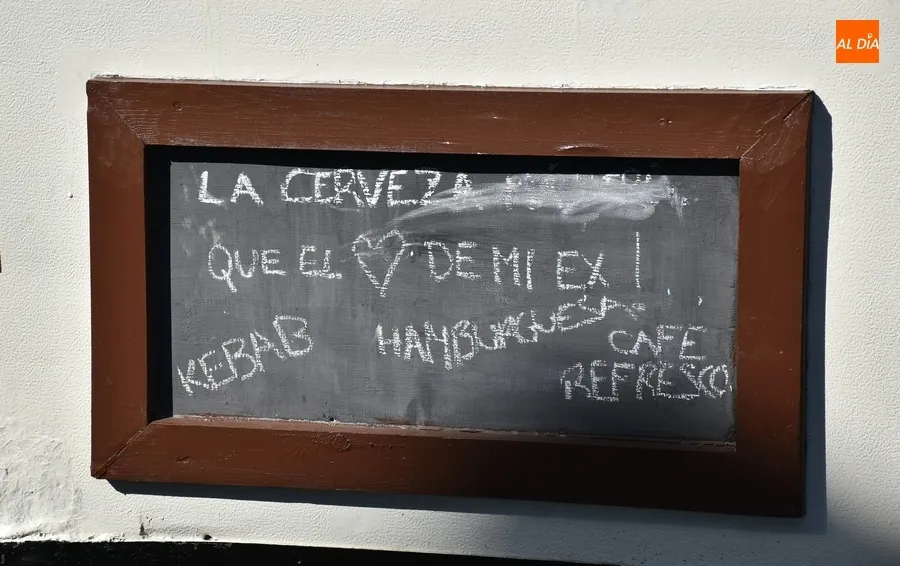 AL DÍA
LA CERVEZA
QUE EL ♡ DE MI EX !
KEBAB
HAMBURGUESA
CAFE
REFRESCO